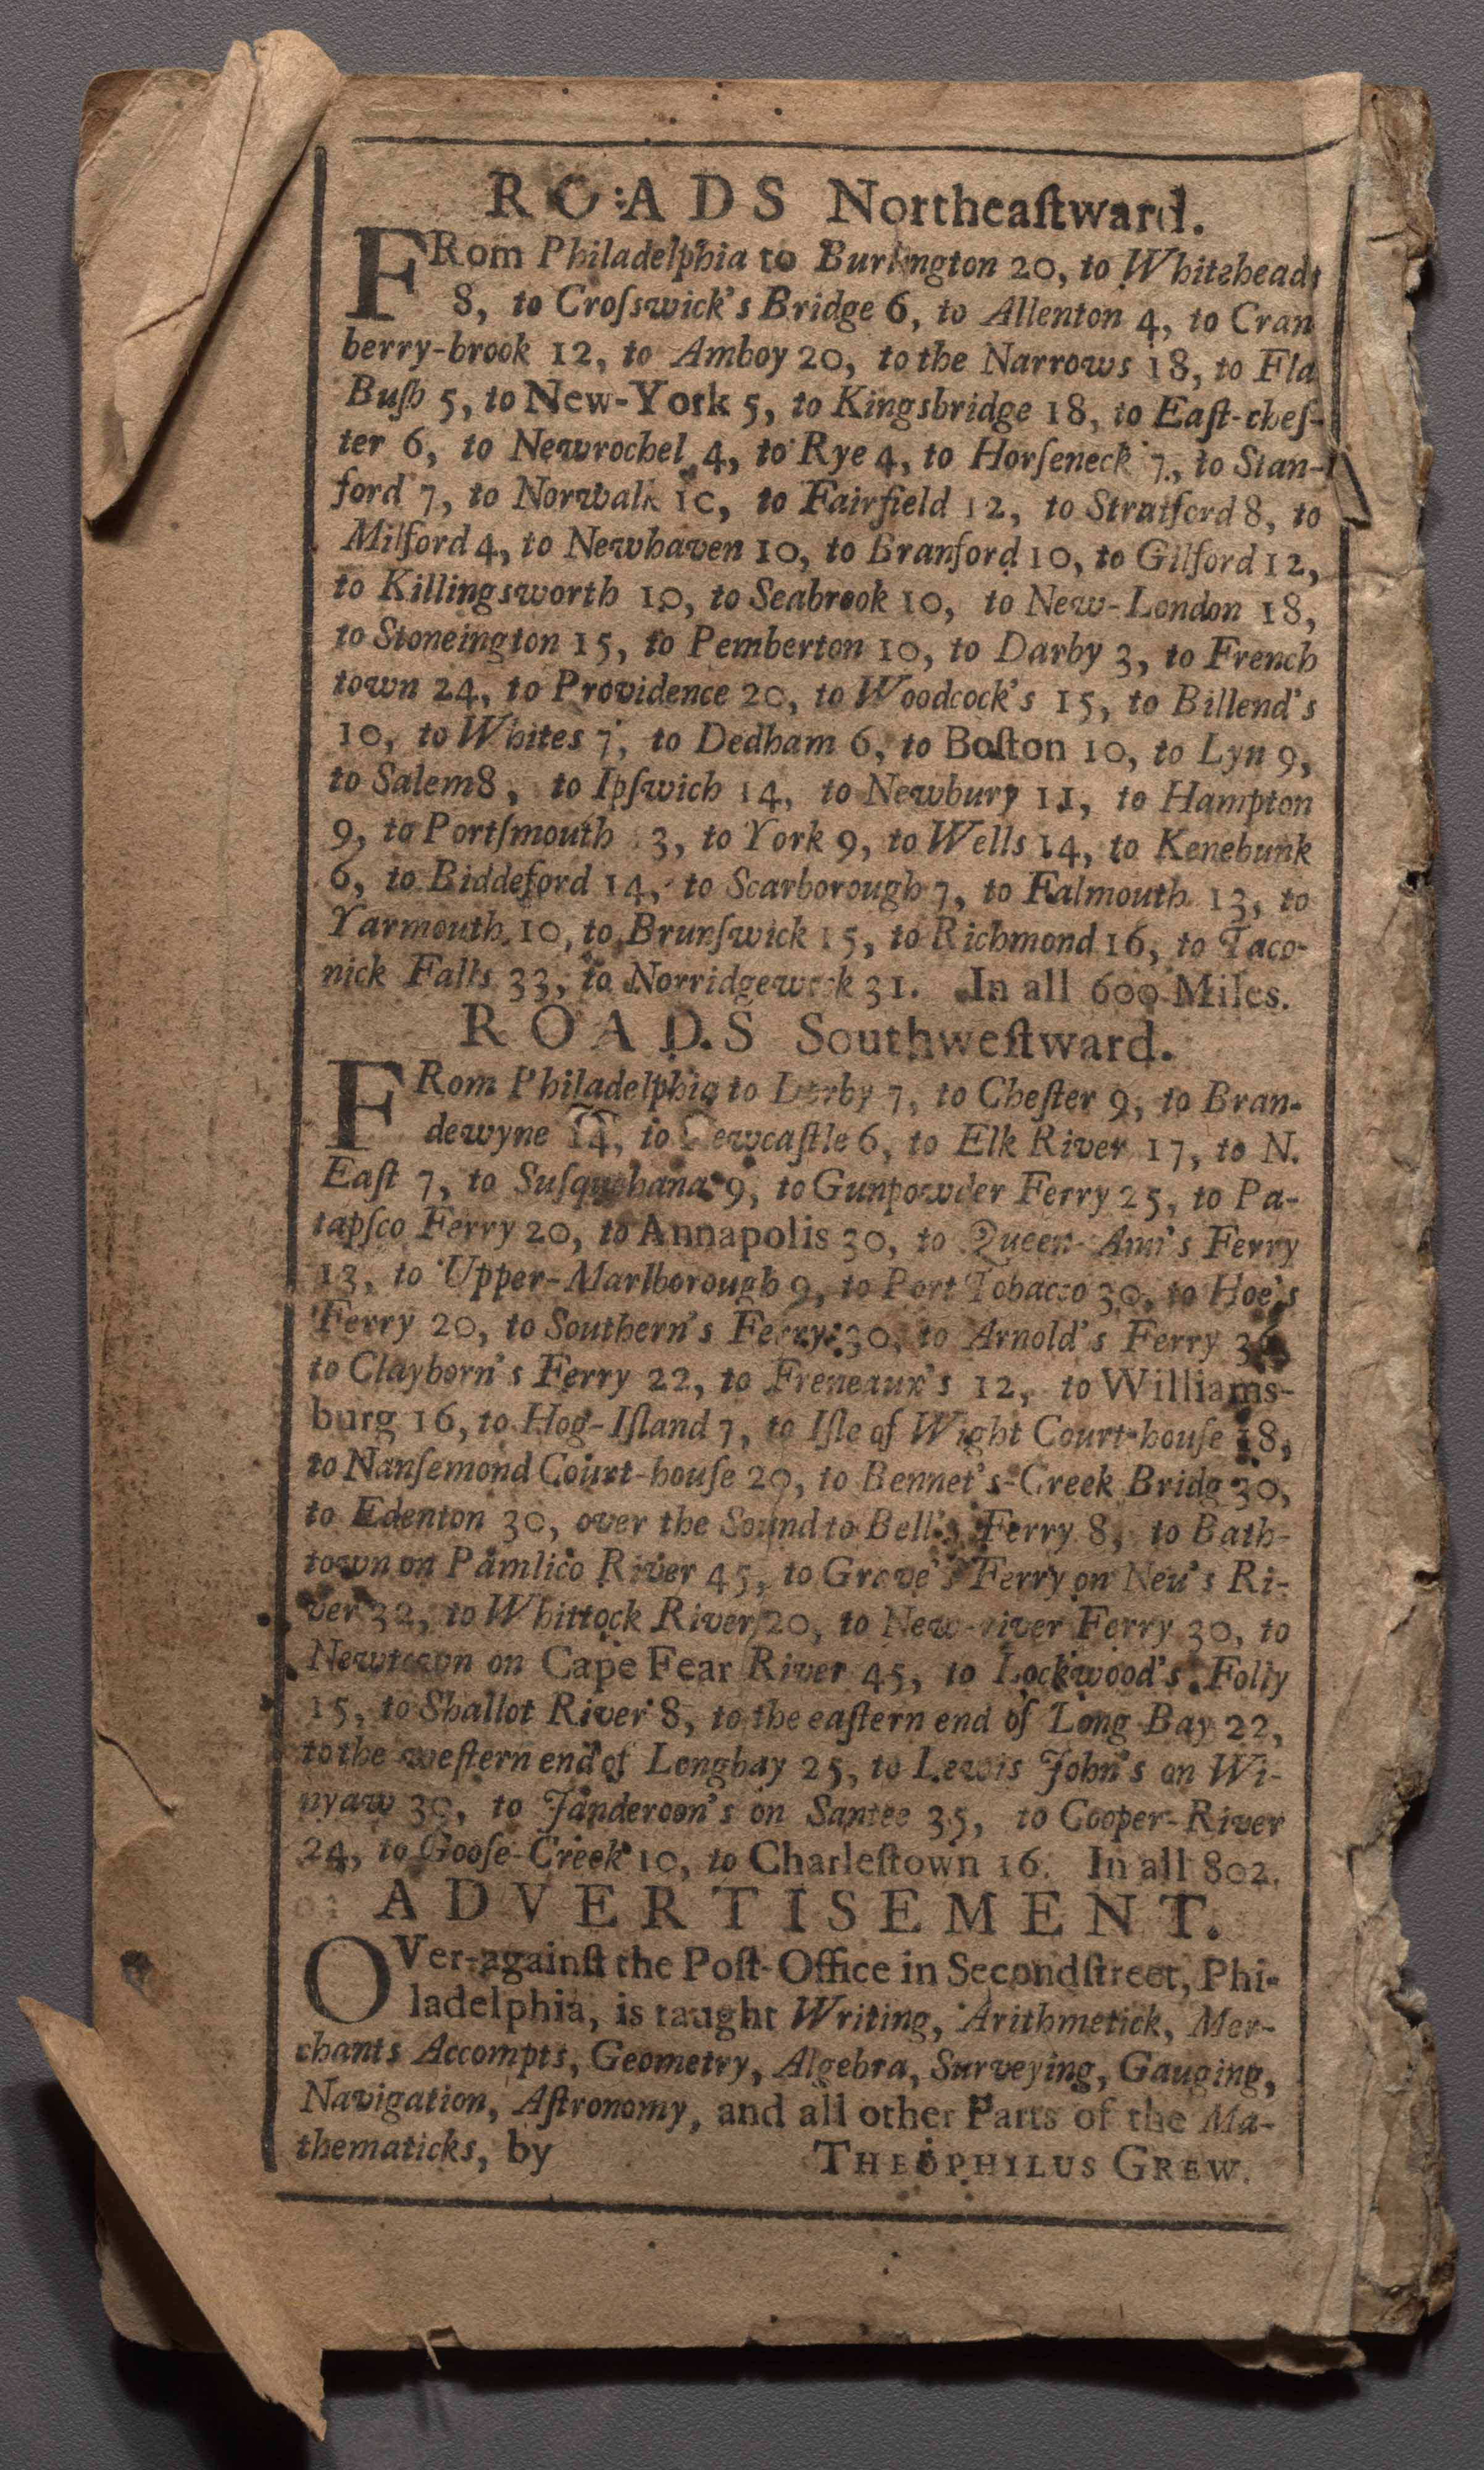 ROADS Northeaſtward.
FRom Philadelphia to Burlington 20, to Whiteheads
8, to Croſswick's Bridge 6, to Allenton 4, to Cran
berry-brook 12, to Amboy 20, to the Narrows 18, to Fla
Buſh 5, to New-York 5, to Kingsbridge 18, to Eaſt-cheſ-
ter 6, to Newrochel 4, to Rye 4, to Horſeneck 7, to Stan-
ford 7, to Norwalk 10, to Fairfield 12, to Stratford 8, to
Milford 4, to Newhaven 10, to Branford 10, to Gilford 12,
to Killingsworth 10, to Seabrook 10, to New-London 18,
to Stoneington 15, to Pemberton 10, to Darby 3, to French
town 24, to Providence 20, to Woodcock's 15, to Billend's
10, to Whites 7, to Dedham 6, to Boſton 10, to Lyn 9,
to Salem 8, to Ipſwich 14, to Newbury 11, to Hampton
9, to Portſmouth 3, to York 9, to Wells 14, to Kenebunk
6, to Biddeford 14, to Scarborough 7, to Falmouth 13, to
Yarmouth 10, to Brunſwick 15, to Richmond 16, to Taco-
nick Falls 33, to Norridgewock 31. In all 600 Miles.
ROADS Southweſtward.
FRom Philadelphia to Derby 7, to Cheſter 9, to Bran-
dewyne 14, to Newcaſtle 6, to Elk River 17, to N.
Eaſt 7, to Suſquehana 9, to Gunpowder Ferry 25, to Pa-
tapſco Ferry 20, to Annapolis 30, to Queen-Ann's Ferry
13, to Upper-Marlborough 9, to Port Tobacco 30, to Hoe's
Ferry 20, to Southern's Ferry 30, to Arnold's Ferry
to Clayborn's Ferry 22, to Freneaux's 12, to Williams-
burg 16, to Hog-Iſland 7, to Iſle of Wight Court-houſe 18,
to Nanſemond Court-houſe 20, to Bennet's-Creek Bridg 30,
to Edenton 30, over the Sound to Bell's Ferry 8, to Bath-
town on Pamlico River 45, to Grave's Ferry on Neu's Ri-
ver 32, to Whittock River 20, to New-river Ferry 30, to
Newtown on Cape Fear River 45, to Lockwood's Folly
15, to Shallot River 8, to the eaſtern end of Long Bay 22,
to the weſtern end of Longbay 25, to Lewis John's on Wi-
nyaw 30, to Janderoon's on Santee 35, to Cooper-River
24, to Gooſe-Creek 10, to Charleſtown 16. In all 802.
ADVERTISEMENT.
OVer-againſt the Poſt-Office in Secondſtreet, Phi-
ladelphia, is taught Writing, Arithmetick, Mer-
chants Accompts, Geometry, Algebra, Surveying, Gauging,
Navigation, Aſtronomy, and all other Parts of the Ma-
thematicks, by THEOPHILUS GREW.